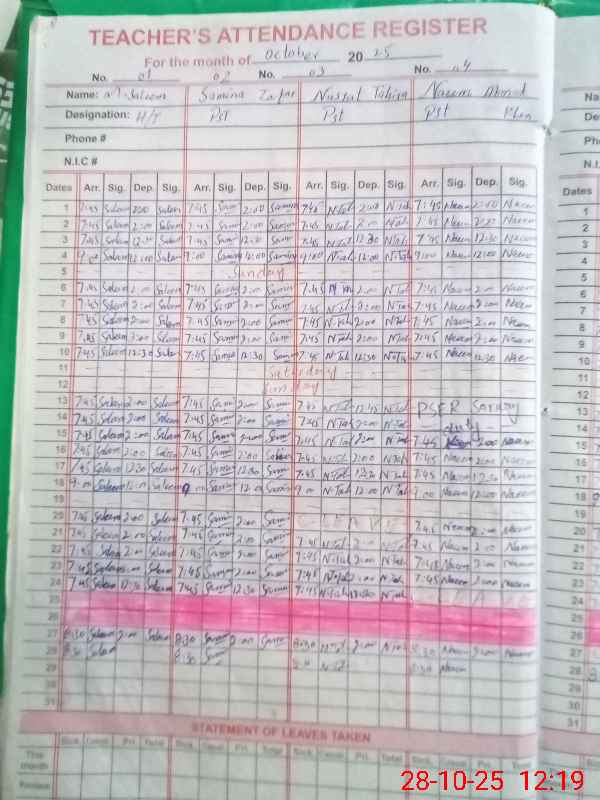 TEACHER'S ATTENDANCE REGISTER
For the month of October 2025
No. 01 02 No. 03 No. 04
Name: M. Saleem Samina Zafar Nusrat Tahira Naeem
Designation: H/T PST PST PST
Phone #
N.I.C #
Dates Arr. Sig. Dep. Sig. Arr. Sig. Dep. Sig. Arr. Sig. Dep. Sig. Arr. Sig. Dep. Sig.
1 7:45 Saleem 2:00 Saleem 7:45 Sam 2:00 Samina 7:45 N Tah 2:00 N Tah 7:45 Naeem 2:00 Naeem
2 7:45 Saleem 2:00 Saleem 7:45 Sam 2:00 Samin 7:45 N Tah 2:00 N Tah 7:45 Naeem 2:00 Naeem
3 7:45 Saleem 12:30 Saleem 7:45 Sam 12:30 Samin 7:45 N Tah 12:30 N Tah 7:45 Naeem 12:30 Naeem
4 9:00 Saleem 12:00 Saleem 9:00 Sam 12:00 Samin 9:00 N Tah 12:00 N Tah 9:00 Naeem 12:00 Naeem
5 Sunday
6 7:45 Saleem 2:00 Saleem 7:45 Sam 2:00 Samin 7:45 N Tah 2:00 N Tah 7:45 Naeem 2:00 Naeem
7 7:45 Saleem 2:00 Saleem 7:45 Sam 2:00 Samin 7:45 N Tah 2:00 N Tah 7:45 Naeem 2:00 Naeem
8 7:45 Saleem 2:00 Saleem 7:45 Sam 2:00 Samin 7:45 N Tah 2:00 N Tah 7:45 Naeem 2:00 Naeem
9 7:45 Saleem 2:00 Saleem 7:45 Sam 2:00 Samin 7:45 N Tah 2:00 N Tah 7:45 Naeem 2:00 Naeem
10 7:45 Saleem 12:30 Saleem 7:45 Sam 12:30 Samin 7:45 N Tah 12:30 N Tah 7:45 Naeem 12:30 Naeem
11 Saturday
12 Sunday
13 7:45 Saleem 2:00 Saleem 7:45 Sam 2:00 Samin 7:45 N Tah 12:45 N Tah PSER Survey
14 7:45 Saleem 2:00 Saleem 7:45 Sam 2:00 Samin 7:45 N Tah 2:00 N Tah duty
15 7:45 Saleem 2:00 Saleem 7:45 Sam 2:00 Samin 7:45 N Tah 2:00 N Tah 7:45 Naeem 2:00 Naeem
16 7:45 Saleem 2:00 Saleem 7:45 Sam 2:00 7:45 N Tah 2:00 N Tah 7:45 Naeem 2:00 Naeem
17 7:45 Saleem 12:30 Saleem 7:45 Sam 12:30 Samin 7:45 N Tah 12:30 N Tah 7:45 Naeem 12:30 Naeem
18 9:00 Saleem 12:00 Saleem 9:00 Sam 12:00 Samin 9:00 N Tah 12:00 N Tah 9:00 Naeem 12:00 Naeem
19
20 7:45 Saleem 2:00 Saleem 7:45 Sam 2:00 Samin 7:45 Naeem 2:00 Naeem
21 7:45 Saleem 2:00 Saleem 7:45 Sam 2:00 Samin 7:45 N Tah 2:00 N Tah 7:45 Naeem 2:00 Naeem
22 7:45 Saleem 2:00 Saleem 7:45 Sam 2:00 Samin 7:45 N Tah 2:00 N Tah 7:45 Naeem 2:00 Naeem
23 7:45 Saleem 2:00 Saleem 7:45 Sam 2:00 Samin 7:45 N Tah 2:00 N Tah 7:45 Naeem 2:00 Naeem
24 7:45 Saleem 12:30 Saleem 7:45 Sam 12:30 Samin 7:45 N Tah 12:30 N Tah
25
26
27 8:30 Saleem 2:00 Saleem 8:30 Sam 2:00 Samin 8:30 N Tah 2:00 N Tah 8:30 Naeem 2:00 Naeem
28 8:30 Saleem 8:30 Sam 8:30 N Tah 8:30 Naeem
29
30
31
STATEMENT OF LEAVES TAKEN
Sick. Casual. Pri. Total Sick. Casual. Pri. Total Sick. Casual. Pri. Total Sick. Casual. Pri. Total
This month
28-10-25 12:19